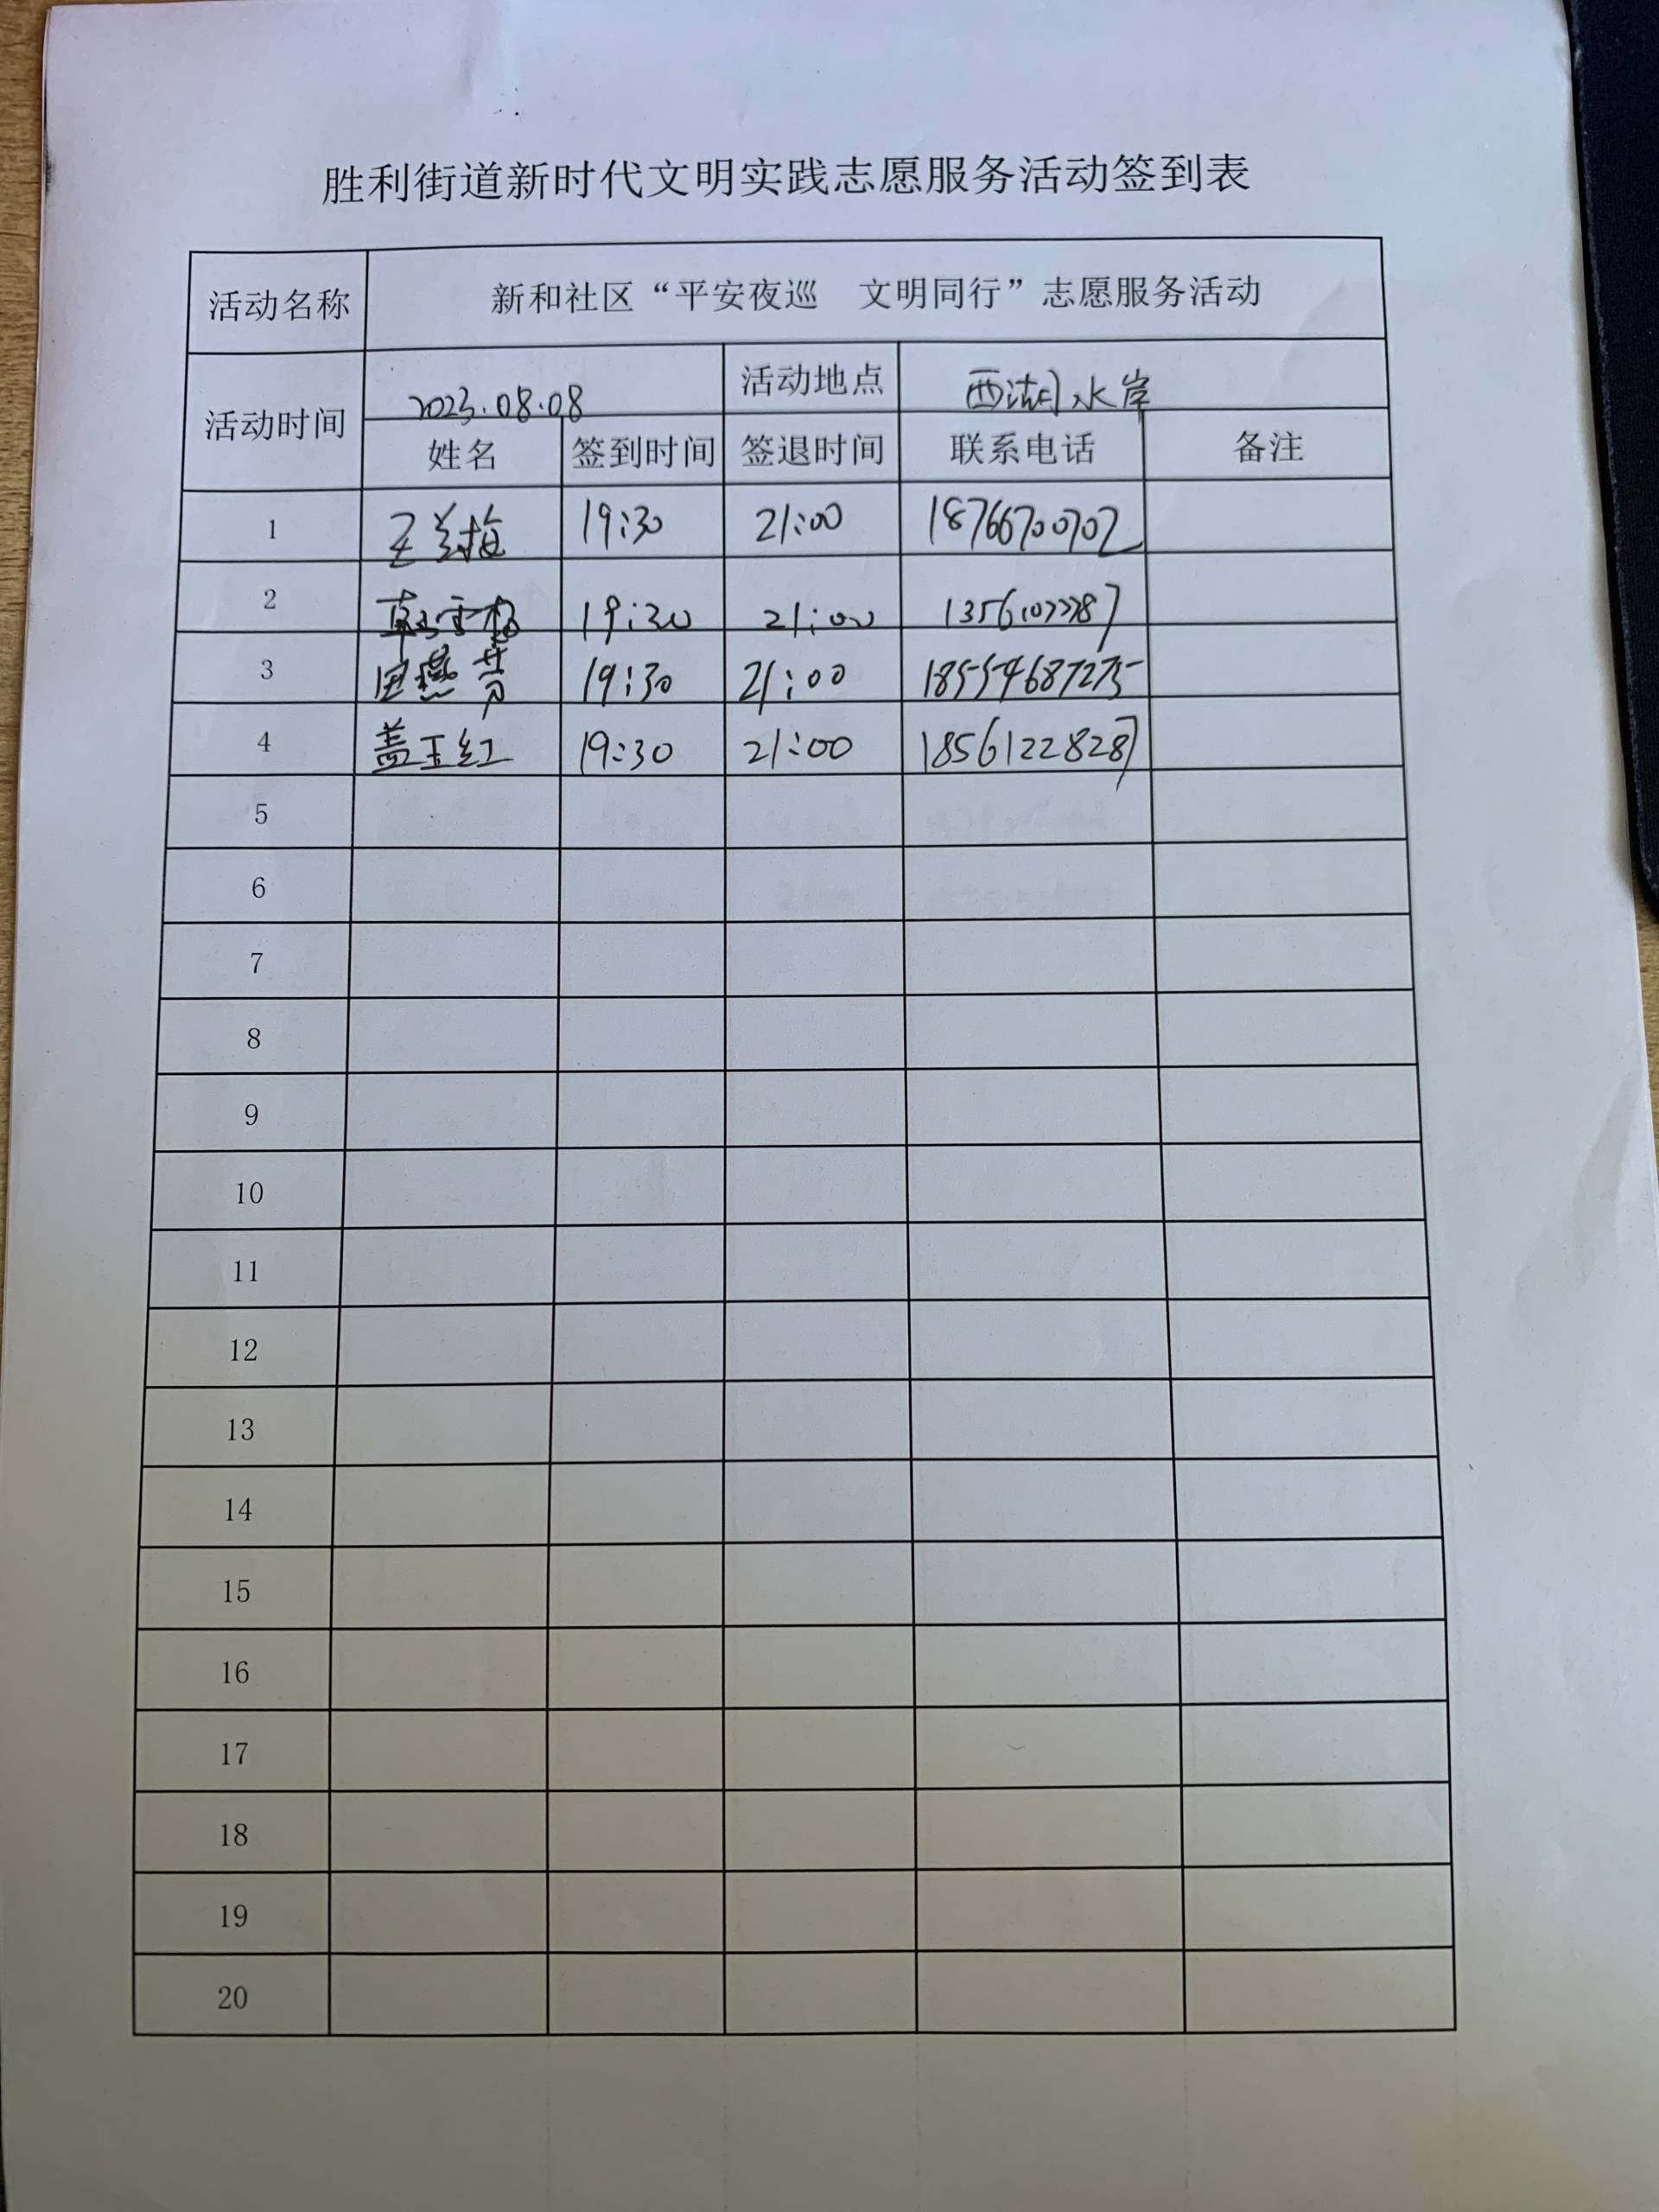 胜利街道新时代文明实践志愿服务活动签到表
活动名称 新和社区“平安夜巡 文明同行”志愿服务活动
活动时间 2023.08.08 活动地点 西湖水岸
姓名 签到时间 签退时间 联系电话 备注
1 19:30 21:00 18766700702
2 19:30 21:00
3 19:30 21:00 18554687275
4 盖玉红 19:30 21:00 18561228287
5
6
7
8
9
10
11
12
13
14
15
16
17
18
19
20